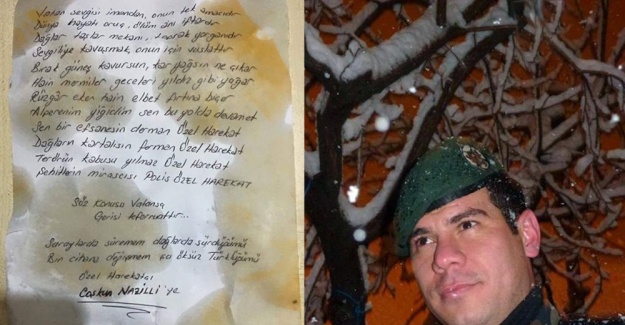 Vatan sevgisi imandan, onun tek amacıdır
Dünya hayatı oruç, ölüm anı iftardır
Dağlar taşlar mekanı, toprak yorganıdır
Sevgiliye kavuşmak, onun için vuslattır
Bırak güneş kavursun, kar yağsın ne çıkar
Hain mermiler geceleri yıldız gibi yağar
Rüzgar eken hain elbet fırtına biçer
Alperenim yiğidim sen bu yolda devam et
Sen bir efsanesin derman Özel Harekat
Dağların kartalısın Arman Özel Harekat
Terörün kabusu yılmaz Özel Harekat
Şehitlerin mirasçısı Polis ÖZEL HAREKAT
Söz Konusu Vatansa
Gerisi teferruattır...
Saraylarda süremem dağlarda sürdüğümü
Bin cihana değişmem şu öksüz Türklüğümü
Özel Harekatçı
Coşkun NAZİLLİ'ye